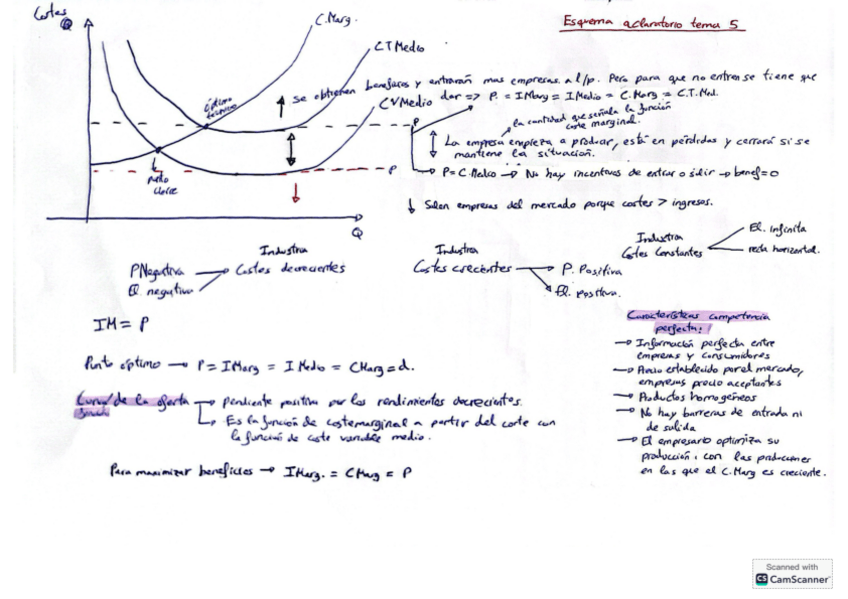 Esquema aclaratorio tema 5
Costes
Q
C.Marg.
CTMedio
CVMedio
óptimo técnico
Punto cierre
P
P
Q
Se obtienen beneficios y entrarán mas empresas a l/p. Pero para que no entren se tiene que
dar => P. = IMarg = IMedio = C.Marg = C.T.Med.
la cantidad que señala la función
coste marginal.
La empresa empieza a producir, está en pérdidas y cerrará si se
mantiene la situación.
P=C.Medio → No hay incentivos de entrar o salir → benef=0
↓ Salen empresas del mercado porque costes > ingresos.
Industria
P Negativa
El. negativa
Costes decrecientes
Industria
Costes crecientes
P. Positiva
El. positiva.
Industria
Costes Constantes
El. infinita
recta horizontal.
IM = P
Punto óptimo → P = IMarg = IMedio = CMarg = d.
Curva de la oferta
→ pendiente positiva por los rendimientos decrecientes.
→ Es la función de coste marginal a partir del corte con
la función de coste variable medio.
Para maximizar beneficios → IMarg. = CMarg = P
Características competencia
perfecta:
→ Información perfecta entre
empresas y consumidores
→ Precio establecido por el mercado,
empresas precio aceptantes
→ Productos homogéneos
→ No hay barreras de entrada ni
de salida
→ El empresario optimiza su
producción, con las producciones
en las que el C.Marg es creciente.
Scanned with
CS CamScanner